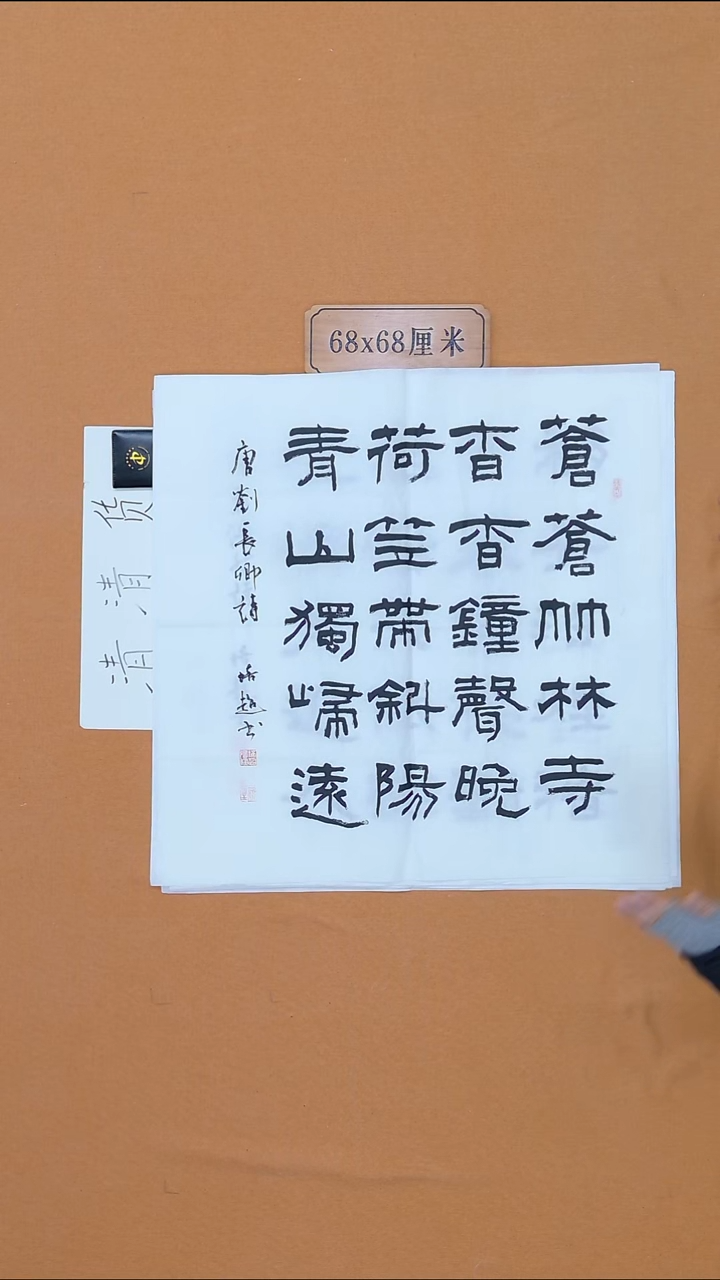 68x68厘米
蒼蒼竹林寺
杳杳鐘聲晚
荷笠帶斜陽
青山獨歸遠
唐劉長卿詩
超书
货清清